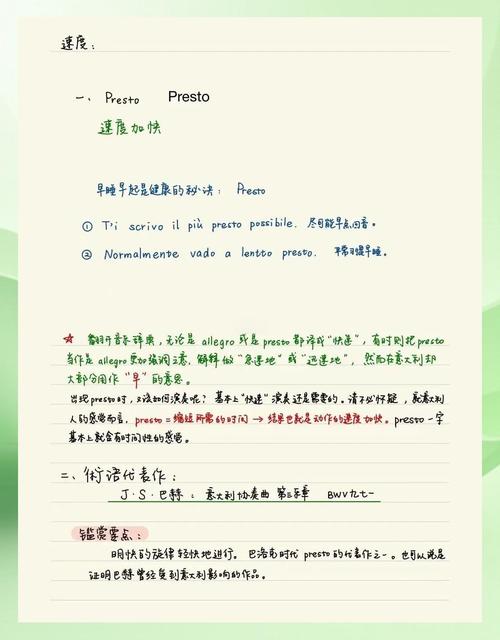 速度：
一、Presto Presto
速度加快
早睡早起是健康的秘诀： Presto
① T'i scrivo il più presto possibile. 尽可能早点回音。
② Normalmente vado a lentto presto. 平常习惯早睡。
☆ 翻开音乐辞典，无论是 allegro 或是 presto 都译成"快速"，有时则把presto
当作是 allegro更加强调之意，解释做"急速地"或"迅速地"，然而在意大利却
大部分用作"早"的意思。
出现presto时，又该如何演奏呢？基本上"快速"演奏还是需要的。请不必怀疑，就意大利
人的感觉而言，presto = 缩短所需的时间 → 结果也就是动作的速度加快。presto 一字
基本上就含有时间性的感觉。
二、術语代表作：
J·S·巴赫：意大利协奏曲 第三乐章 BWV九七一
鑑赏要点：
明快的旋律轻快地进行。巴洛克时代 presto的代表作之一。也可以说是
证明巴赫曾经受到意大利影响的作品。